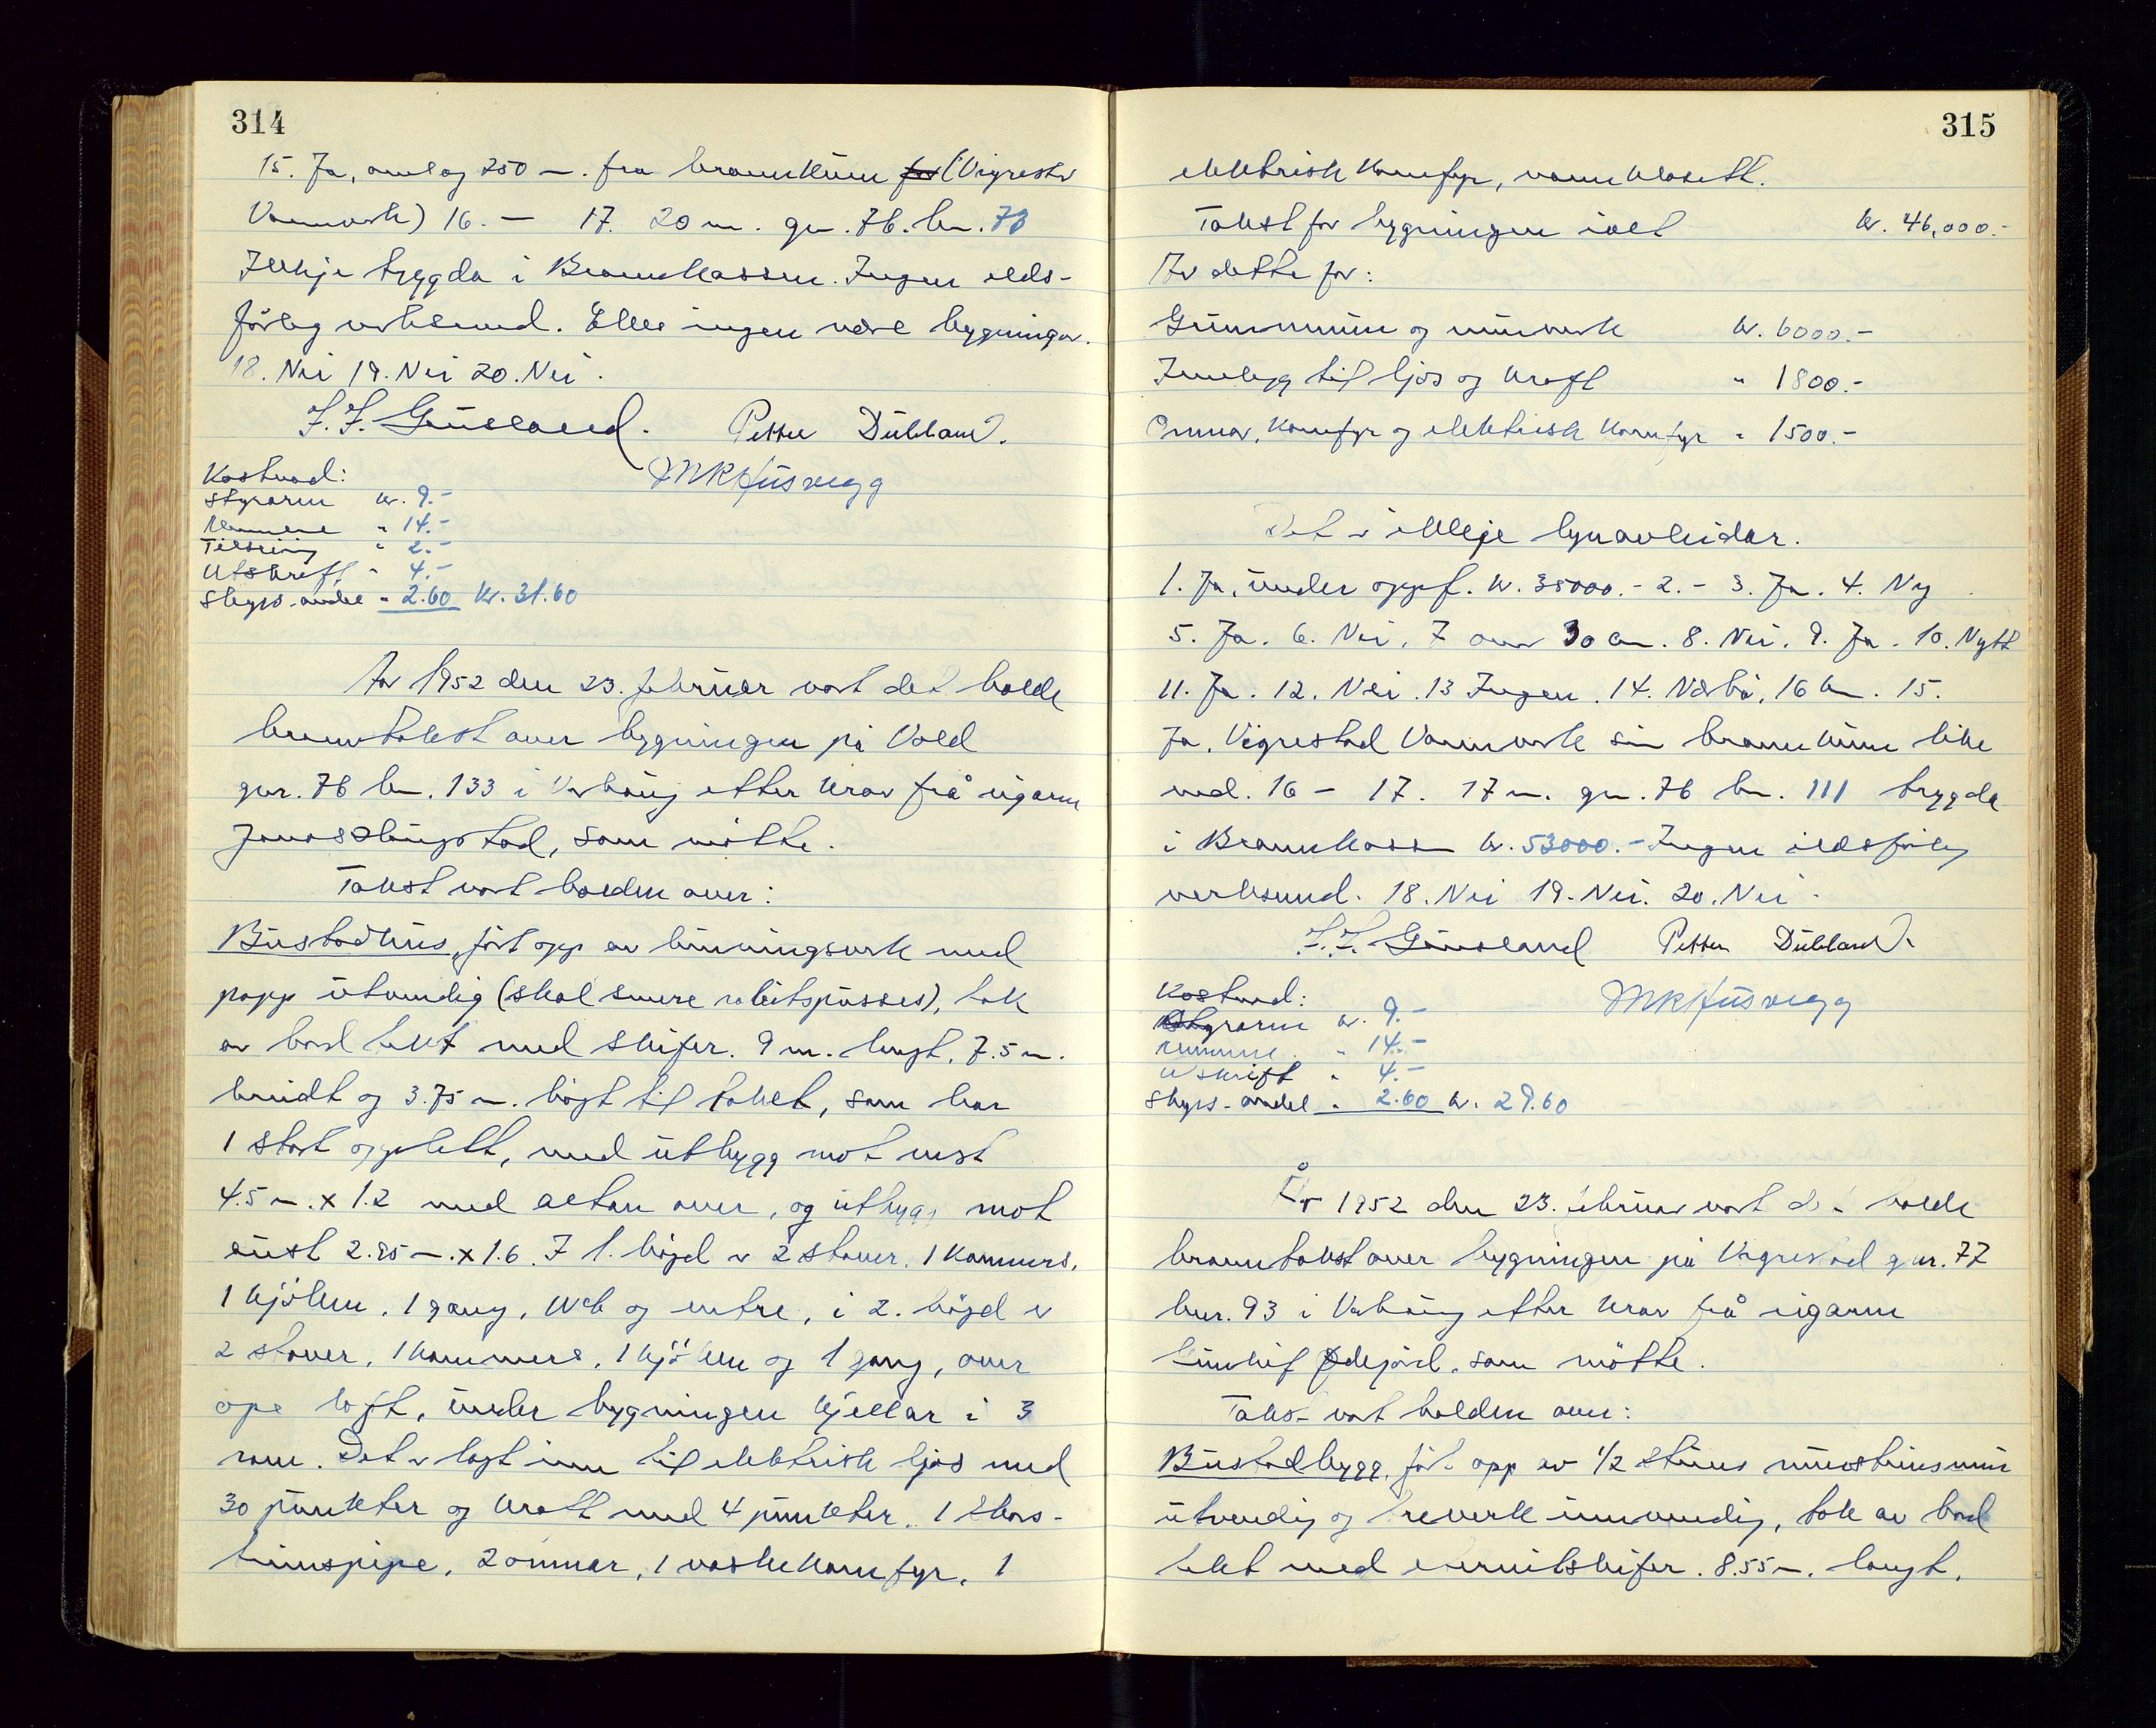 314
15. Ja, omlag 250 m. fra brannkum for (Vigrestad
Vannverk) 16. — 17. 20 m. gnr. 76. bnr. 73
Ikkje trygda i Brannkassen. Ingen elds-
fårleg verksemd. Elles ingen nære bygningar.
18. Nei 19. Nei 20. Nei.
J. J. Gausland. Petter Dubland.
MKHusvegg
Kostnad:
Styraren kr. 9.-
Nemnene " 14.-
Tilsening " 2.-
Utskrift " 4.-
Skyss-andel " 2.60 Kr. 31.60
År 1952 den 23. februar vart det halde
branntakst over bygningen på Vold
gnr. 76 bnr. 133 i Varhaug etter krav frå eigaren
Jonas Slingstad, som møtte.
Takst vart halden over:
Bustadhus, ført opp av binningsverk med
papp utvendig (skal smere rabitspusses), tak
av bord tekt med skifer. 9 m. langt, 7.5 m.
breidt og 3.75 m. høgt til taket, som har
1 stort opplett, med utbygg mot vest
4.5 m. x 1.2 med altan over, og utbygg mot
aust 2.85 m. x 1.6. I 1. høgd er 2 stover, 1 kammers,
1 kjøken, 1 gang, Wck og entre, i 2. høgd er
2 stover, 1 kammers, 1 kjøken og 1 gang, over
ope loft, under bygningen kjellar i 3
rom. Det er lagt inn til elektrisk ljos med
30 punkter og kraft med 4 punkter. 1 skor-
steinspipe, 2 omnar, 1 vaskekomfyr, 1
315
elektrisk komfyr, vannklosett.
Takst for bygningen ialt kr. 46,000.-
Av dette for:
Grunnmur og murverk kr. 6000.-
Innlegg til ljos og kraft " 1800.-
Omnar, komfyr og elektrisk komfyr " 1500.-
Det er ikkje lynavleidar.
1. Ja, under oppf. kr. 35000.- 2. - 3. Ja. 4. Ny
5. Ja. 6. Nei. 7 over 30 cm. 8. Nei. 9. Ja. 10. Nytt
11. Ja. 12. Nei. 13 Ingen. 14. Nærbø, 16 km. 15.
Ja, Vigrestad Vannverk sin brannkum like
ved. 16 - 17. 17 m. gnr. 76 bnr. 111 trygda
i Brannkassen kr. 53000.- Ingen eldsfårleg
verksemd. 18. Nei 19. Nei. 20. Nei.
J. J. Gausland Petter Dubland.
MKHusvegg
Kostnad:
Styraren kr. 9.-
Nemnene " 14.-
Utskrift " 4.-
Skyss-andel " 2.60 kr. 29.60
År 1952 den 23. februar vart det halde
branntakst over bygningen på Vigrestad gnr. 77
bnr. 93 i Varhaug etter krav frå eigaren
Gunleif Ødegård, som møtte.
Takst vart halden over:
Bustadbygg, ført opp av 1/2 steins mursteinsmur
utvendig og treverk innvendig, tak av bord
tekt med eternitskifer. 8.55 m. langt,